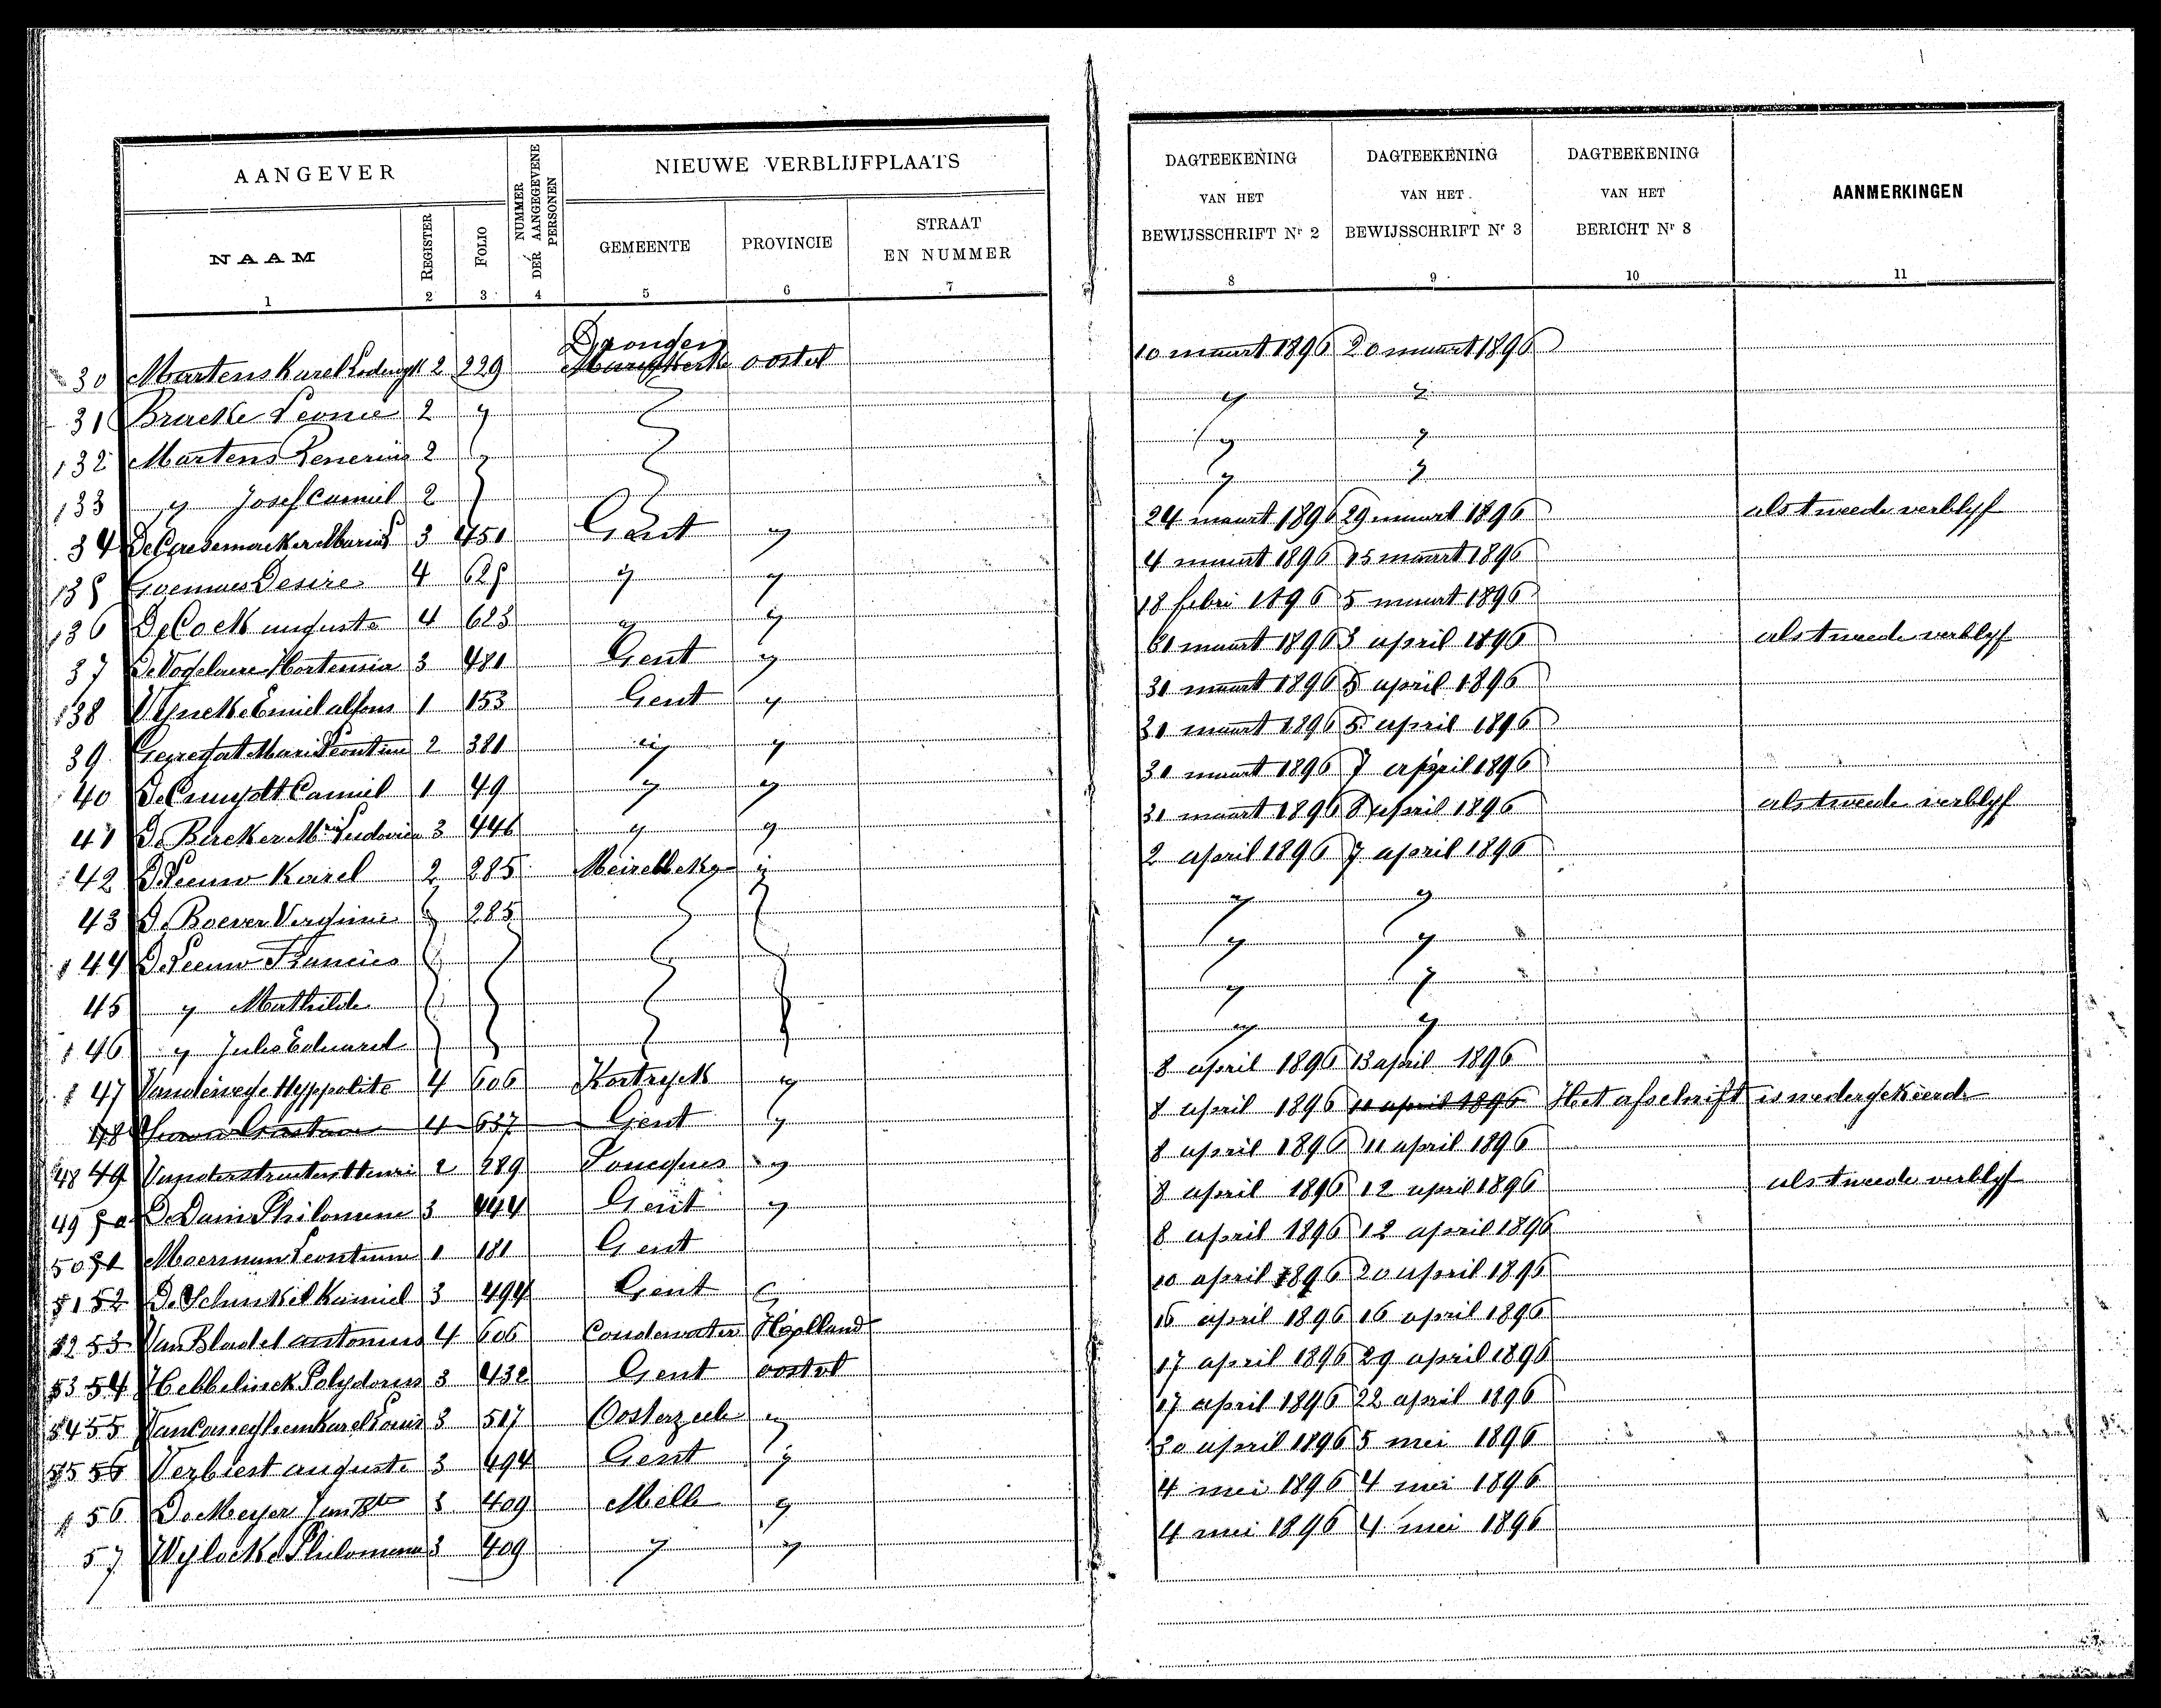 AANGEVER
NUMMER DER AANGEGEVENE PERSONEN
NIEUWE VERBLIJFPLAATS
DAGTEEKENING VAN HET BEWIJSSCHRIFT Nr 2
DAGTEEKENING VAN HET BEWIJSSCHRIFT Nr 3
DAGTEEKENING VAN HET BERICHT Nr 8
AANMERKINGEN
NAAM REGISTER FOLIO GEMEENTE PROVINCIE STRAAT EN NUMMER
1 2 3 4 5 6 7 8 9 10 11
Dronger
30 Martens Karel Lodewyk 2 229 Mariakerke oostvl 10 maart 1896 20 maart 1896
31 Bracke Leonie 2 y y y
132 Martens Renerius 2 y y
133 y Josef Camiel 2 y y
34 3 451 Gent y 24 maart 1896 29 maart 1896 als tweede verblyf
135 Goemaes Desire 4 625 y y 4 maart 1896 15 maart 1896
136 De Cock auguste 4 623 y y 18 febri 1896 5 maart 1896
37 De Vogelaere Hortensia 3 481 Gent y 31 maart 1896 3 april 1896 als tweede verblyf
138 Wyncke Emiel alfons 1 153 Gent y 30 maart 1896 5 april 1896
39 2 381 y y 31 maart 1896 5 april 1896
40 Camiel 1 49 y y 30 maart 1896 7 april 1896
41 De Backer Mia Ludovica 3 446 y y 31 maart 1896 8 april 1896 als tweede verblyf
42 De Leeuw Karel 2 285 Meirelbeke y 2 april 1896 7 april 1896
43 De Boever Verginie 285 y y
144 De Leeuw Francies y y
45 y Mathilde y y
146 y Jules Eduard y y
147 Vandewege Hyppolite 4 606 Kortryck y 8 april 1896 13 april 1896
48 4 637 Gent y 8 april 1896 11 april 1896 Het afschrift is wedergekeerd
48 49 Vanderstraeten Henri 2 289 y 8 april 1896 11 april 1896
49 50 Philomene 3 444 Gent y 8 april 1896 12 april 1896 als tweede verblyf
50 51 Moerman Leontine 1 181 Gent 8 april 1896 12 april 1896
51 52 De Schinkel Kamiel 3 494 Gent 10 april 1896 20 april 1896
52 53 Van Bladel antonius 4 606 Coudewater Holland 16 april 1896 16 april 1896
53 54 Hebbelinck Polydorus 3 432 Gent oostvl 17 april 1896 29 april 1896
54 55 Karel Louis 3 517 Oosterzeele y 17 april 1896 22 april 1896
55 56 Verbiest auguste 3 494 Gent y 30 april 1896 5 mei 1896
156 De Meyer Jan Bte 3 409 Melle y 4 mei 1896 4 mei 1896
57 Wylocke Philomena 3 409 y y 4 mei 1896 4 mei 1896